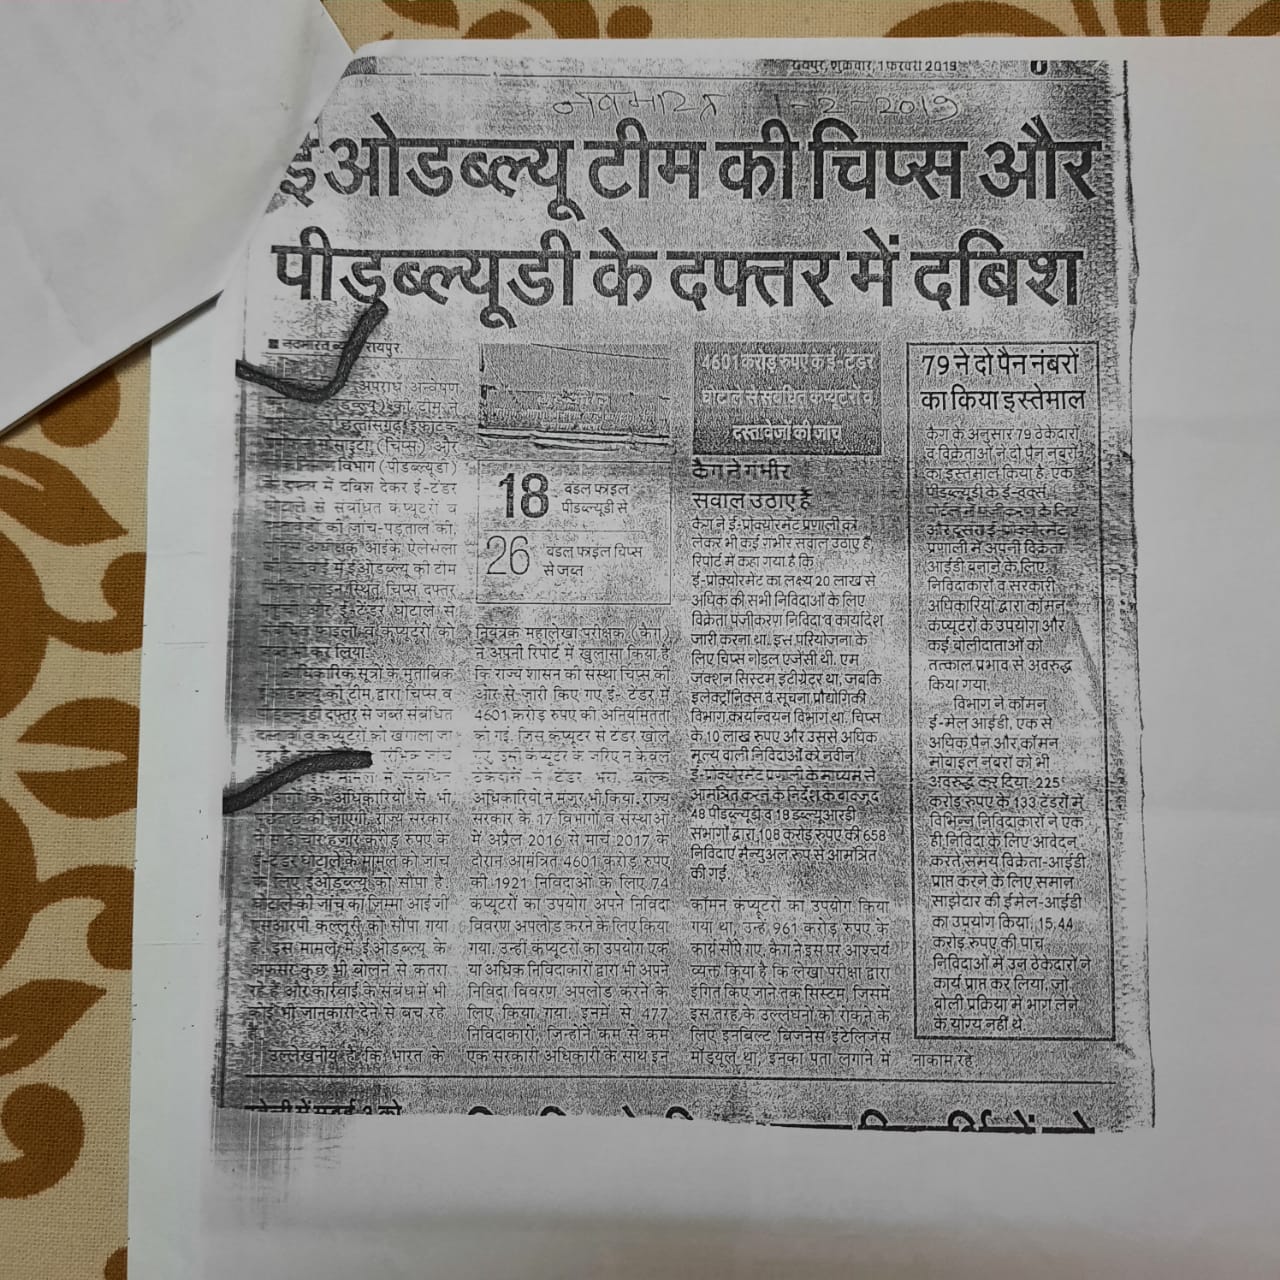 रायपुर, शुक्रवार, 1 फरवरी 2019
नवभारत 1-2-2019
ईओडब्ल्यू टीम की चिप्स और
पीडब्ल्यूडी के दफ्तर में दबिश
■ नवभारत ब्यूरो रायपुर.
अपराध अन्वेषण
को टीम ने
छत्तीसगढ़ इंफोटेक
सोसाइटी (चिप्स) और
विभाग (पीडब्ल्यूडी)
के दफ्तर में दबिश देकर ई-टेंडर
घोटाले से संबंधित कंप्यूटरों व
की जांच-पड़ताल की.
आईके एलेसेला
में ईओडब्ल्यू की टीम
स्थित चिप्स दफ्तर
और ई-टेंडर घोटाले से
फाइलों व कंप्यूटरों को
कर लिया.
आधिकारिक सूत्रों के मुताबिक
की टीम द्वारा चिप्स व
दफ्तर से जब्त संबंधित
व कंप्यूटरों को खंगाला जा
जांच
मामले से संबंधित
के अधिकारियों से भी
की जाएगी. राज्य सरकार
चार हजार करोड़ रुपए के
ई-टेंडर घोटाले के मामले की जांच
के लिए ईओडब्ल्यू को सौंपा है.
घोटाले की जांच का जिम्मा आईजी
एसआरपी कल्लूरी को सौंपा गया
है. इस मामले में ईओडब्ल्यू के
अफसर कुछ भी बोलने से कतरा
रहे हैं और कार्रवाई के संबंध में भी
कोई भी जानकारी देने से बच रहे
उल्लेखनीय है कि भारत के
18 बंडल फाइल
पीडब्ल्यूडी से
26 बंडल फाइल चिप्स
से जब्त
नियंत्रक महालेखा परीक्षक (कैग)
ने अपनी रिपोर्ट में खुलासा किया है
कि राज्य शासन की संस्था चिप्स की
ओर से जारी किए गए ई- टेंडर में
4601 करोड़ रुपए की अनियमितता
की गई. जिस कंप्यूटर से टेंडर खोले
गए, उसी कंप्यूटर के जरिए न केवल
ठेकेदारों ने टेंडर भरा, बल्कि
अधिकारियों न मंजूर भी किया. राज्य
सरकार के 17 विभागों व संस्थाओं
में अप्रैल 2016 से मार्च 2017 के
दौरान आमंत्रित 4601 करोड़ रुपए
की 1921 निविदाओं के लिए 74
कंप्यूटरों का उपयोग अपने निविदा
विवरण अपलोड करने के लिए किया
गया. उन्हीं कंप्यूटरों का उपयोग एक
या अधिक निविदाकारों द्वारा भी अपने
निविदा विवरण अपलोड करने के
लिए किया गया. इनमें से 477
निविदाकारों, जिन्होंने कम से कम
एक सरकारी अधिकारी के साथ इन
4601 करोड़ रुपए के ई-टेंडर
घोटाले से संबंधित कंप्यूटरों व
दस्तावेजों की जांच
कैग ने गंभीर
सवाल उठाए हैं
कैग ने ई-प्रोक्योरमेंट प्रणाली को
लेकर भी कई गंभीर सवाल उठाए हैं.
रिपोर्ट में कहा गया है कि
ई-प्रोक्योरमेंट का लक्ष्य 20 लाख से
अधिक की सभी निविदाओं के लिए
विक्रेता पंजीकरण निविदा व कार्यादेश
जारी करना था. इस परियोजना के
लिए चिप्स नोडल एजेंसी थी. एम
जंक्शन सिस्टम इंटीग्रेटर था, जबकि
इलेक्ट्रॉनिक्स व सूचना प्रौद्योगिकी
विभाग कार्यान्वयन विभाग था. चिप्स
के 10 लाख रुपए और उससे अधिक
मूल्य वाली निविदाओं को नवीन
ई-प्रोक्योरमेंट प्रणाली के माध्यम से
आमंत्रित करने के निर्देश के बावजूद
48 पीडब्ल्यूडी व 18 डब्ल्यूआरडी
संभागों द्वारा 108 करोड़ रुपए की 658
निविदाएं मैन्युअल रूप से आमंत्रित
की गई.
कॉमन कंप्यूटरों का उपयोग किया
गया था, उन्हें 961 करोड़ रुपए के
कार्य सौंपे गए. कैग ने इस पर आश्चर्य
व्यक्त किया है कि लेखा परीक्षा द्वारा
इंगित किए जाने तक सिस्टम, जिसमें
इस तरह के उल्लंघनों को रोकने के
लिए इनबिल्ट बिजनेस इंटेलिजेंस
मॉड्यूल था, इनका पता लगाने में
नाकाम रहे.
79 ने दो पैन नंबरों
का किया इस्तेमाल
कैग के अनुसार 79 ठेकेदारों
व विक्रेताओं ने दो पैन नंबरों
का इस्तेमाल किया है. एक
पीडब्ल्यूडी के ई-वर्क्स
पोर्टल में पंजीकरण के लिए
और दूसरा ई-प्रोक्योरमेंट
प्रणाली में अपनी विक्रेता
आईडी बनाने के लिए
निविदाकारों व सरकारी
अधिकारियों द्वारा कॉमन
कंप्यूटरों के उपयोग और
कई बोलीदाताओं को
तत्काल प्रभाव से अवरुद्ध
किया गया.
विभाग ने कॉमन
ई-मेल आईडी, एक से
अधिक पैन और कॉमन
मोबाइल नंबरों को भी
अवरुद्ध कर दिया. 225
करोड़ रुपए के 133 टेंडरों में
विभिन्न निविदाकारों ने एक
ही निविदा के लिए आवेदन
करते समय विक्रेता-आईडी
प्राप्त करने के लिए समान
साझेदार की ईमेल-आईडी
का उपयोग किया. 15.44
करोड़ रुपए की पांच
निविदाओं में उन ठेकेदारों ने
कार्य प्राप्त कर लिया, जो
बोली प्रक्रिया में भाग लेने
के योग्य नहीं थे.